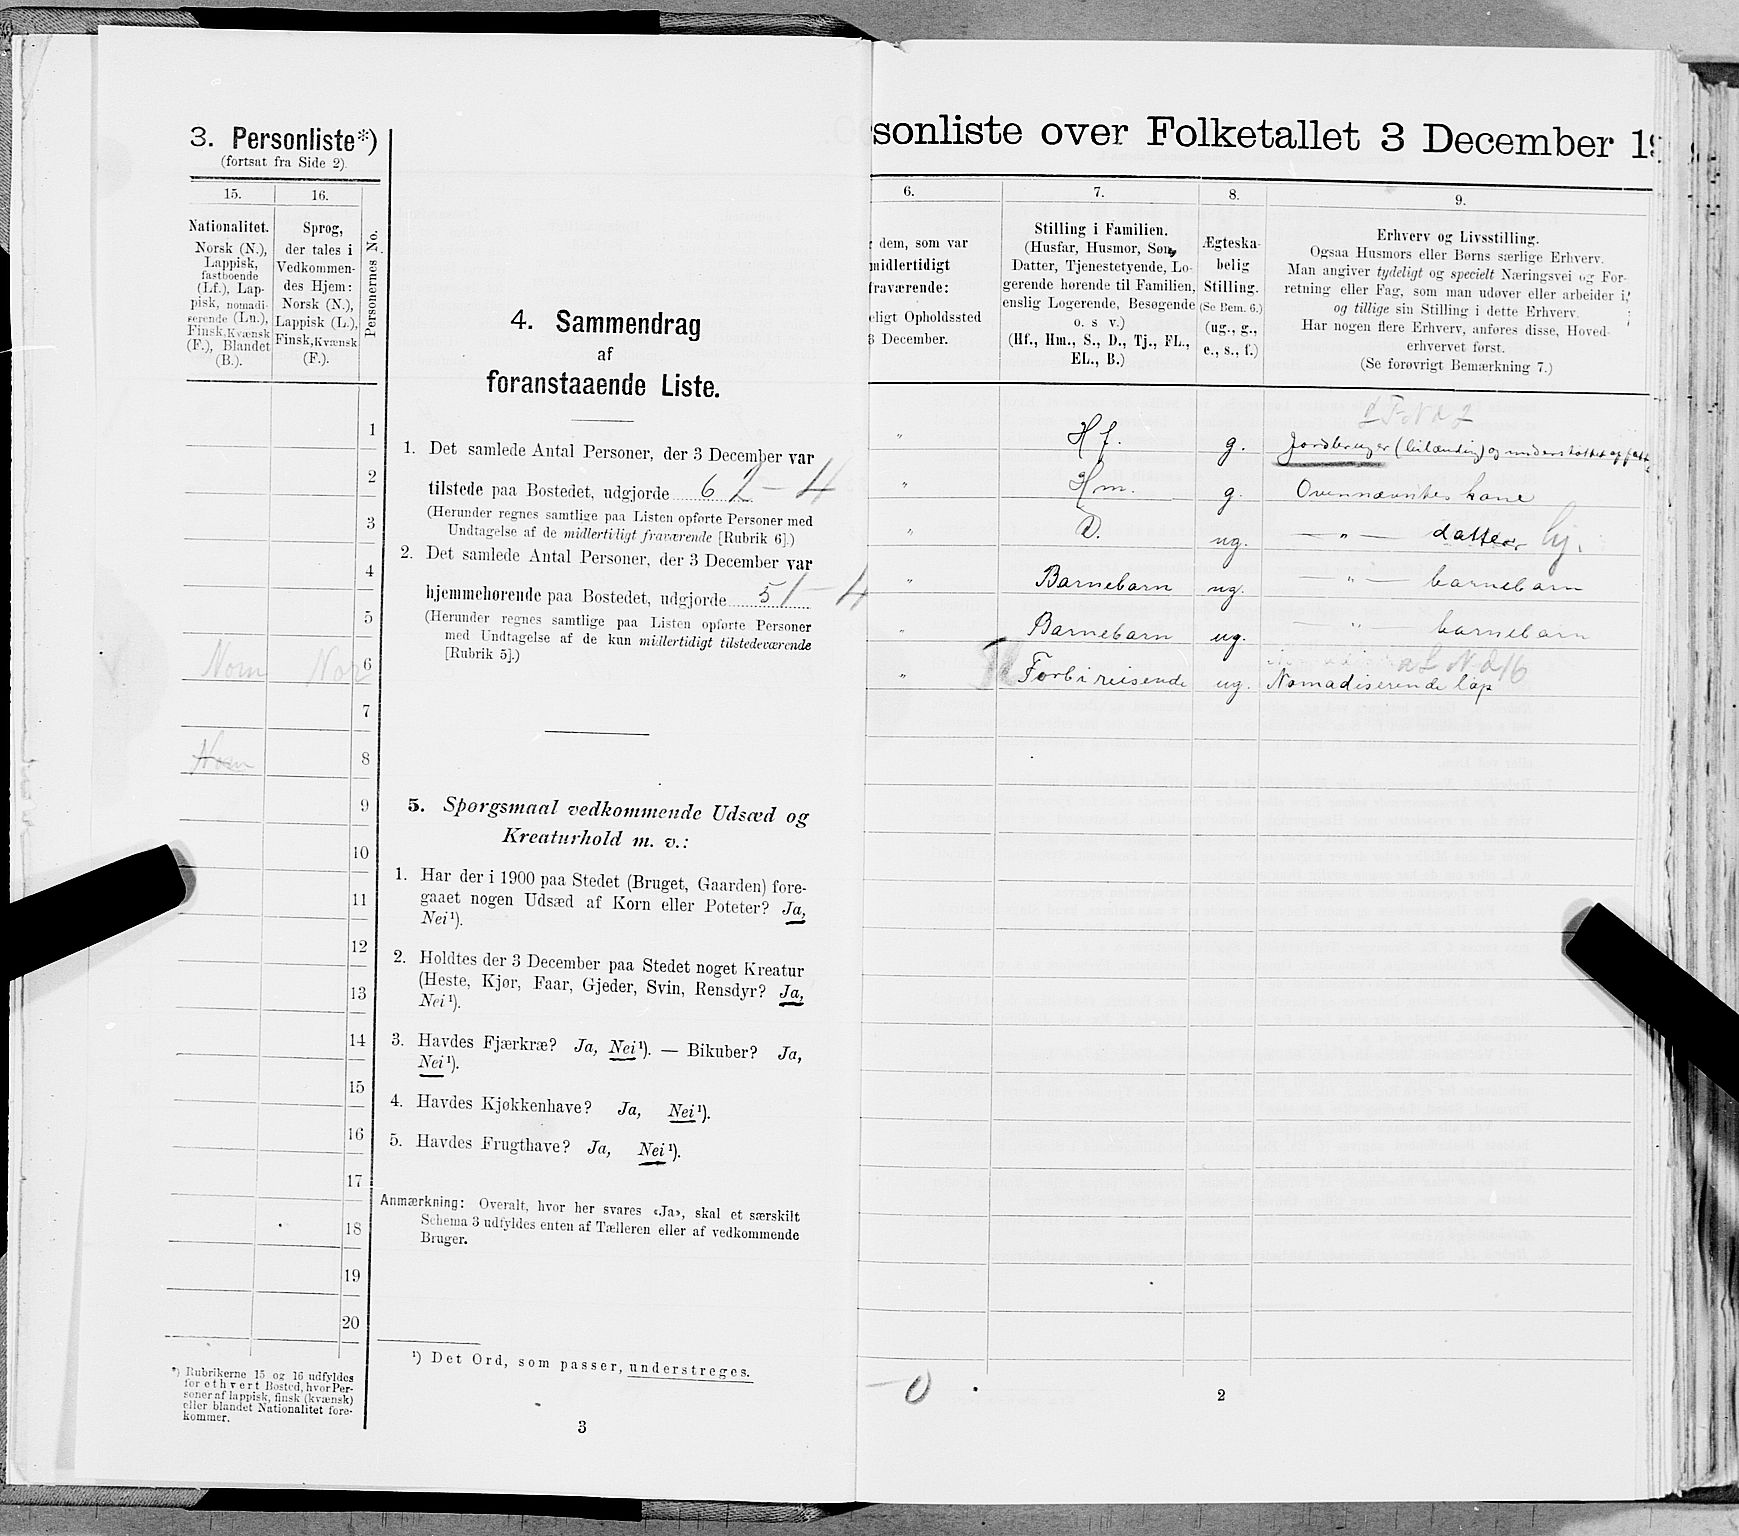 3. Personliste*)
(fortsat fra Side 2).
15. 16.
Personernes No.
Nationalitet.
Norsk (N.),
Lappisk,
fastboende
(Lf.), Lap-
pisk, nomadi-
serende (Ln.),
Finsk, Kvænsk
(F.), Blandet
(B.).
Sprog,
der tales i
Vedkommen-
des Hjem:
Norsk (N.),
Lappisk (L.),
Finsk, Kvænsk
(F.).
1
2
3
4
5
Nom Nor 6
7
Nom 8
9
10
11
12
13
14
15
16
17
18
19
20
*) Rubrikerne 15 og 16 udfyldes
for ethvert Bosted, hvor Per-
soner af lappisk, finsk (kvænsk)
eller blandet Nationalitet fore-
kommer.
4. Sammendrag
af
foranstaaende Liste.
1. Det samlede Antal Personer, der 3 December var
tilstede paa Bostedet, udgjorde 6 2 – 4
(Herunder regnes samtlige paa Listen opførte Personer med
Undtagelse af de midlertidigt fraværende [Rubrik 6].)
2. Det samlede Antal Personer, der 3 December var
hjemmehørende paa Bostedet, udgjorde 5 1 – 4
(Herunder regnes samtlige paa Listen opførte Personer
med Undtagelse af de kun midlertidigt tilstedeværende
[Rubrik 5].)
5. Spørgsmaal vedkommende Udsæd og
Kreaturhold m. v.:
1. Har der i 1900 paa Stedet (Bruget, Gaarden) fore-
gaaet nogen Udsæd af Korn eller Poteter? Ja,
Nei¹).
2. Holdtes der 3 December paa Stedet noget Kreatur
(Heste, Kjør, Faar, Gjeder, Svin, Rensdyr? Ja,
Nei¹).
3. Havdes Fjærkræ? Ja, Nei¹). — Bikuber? Ja,
Nei¹).
4. Havdes Kjøkkenhave? Ja, Nei¹).
5. Havdes Frugthave? Ja, Nei¹).
Anmærkning: Overalt, hvor her svares «Ja», skal et særskilt
Schema 3 udfyldes enten af Tælleren eller af vedkommende
Bruger.
¹) Det Ord, som passer, understreges.
3
sonliste over Folketallet 3 December 19
6. 7. 8. 9.
dem, som var
midlertidigt
fraværende:
eligt Opholdssted
3 December.
Stilling i Familien.
(Husfar, Husmor, Søn,
Datter, Tjenestetyende, Lo-
gerende hørende til Familien,
enslig Logerende, Besøgende
o. s v.)
(Hf., Hm., S., D., Tj., FL.,
EL., B.)
Ægteska-
belig
Stilling.
(Se Bem. 6.)
(ug., g.,
e., s., f.)
Erhverv og Livsstilling.
Ogsaa Husmors eller Børns særlige Erhverv.
Man angiver tydeligt og specielt Næringsvei og For-
retning eller Fag, som man udøver eller arbeider i,
og tillige sin Stilling i dette Erhverv.
Har nogen flere Erhverv, anføres disse, Hoved-
erhvervet først.
(Se forøvrigt Bemærkning 7.)
" Hf. g. Jordbruger
" Hm. g. Ovennævntes kone
" D. ug. — " — datter hj.
" Barnebarn ug. — " — barnebarn
" Barnebarn ug. — " barnebarn
" Forbireisende ug. Nomadiserende lap
– 0
2